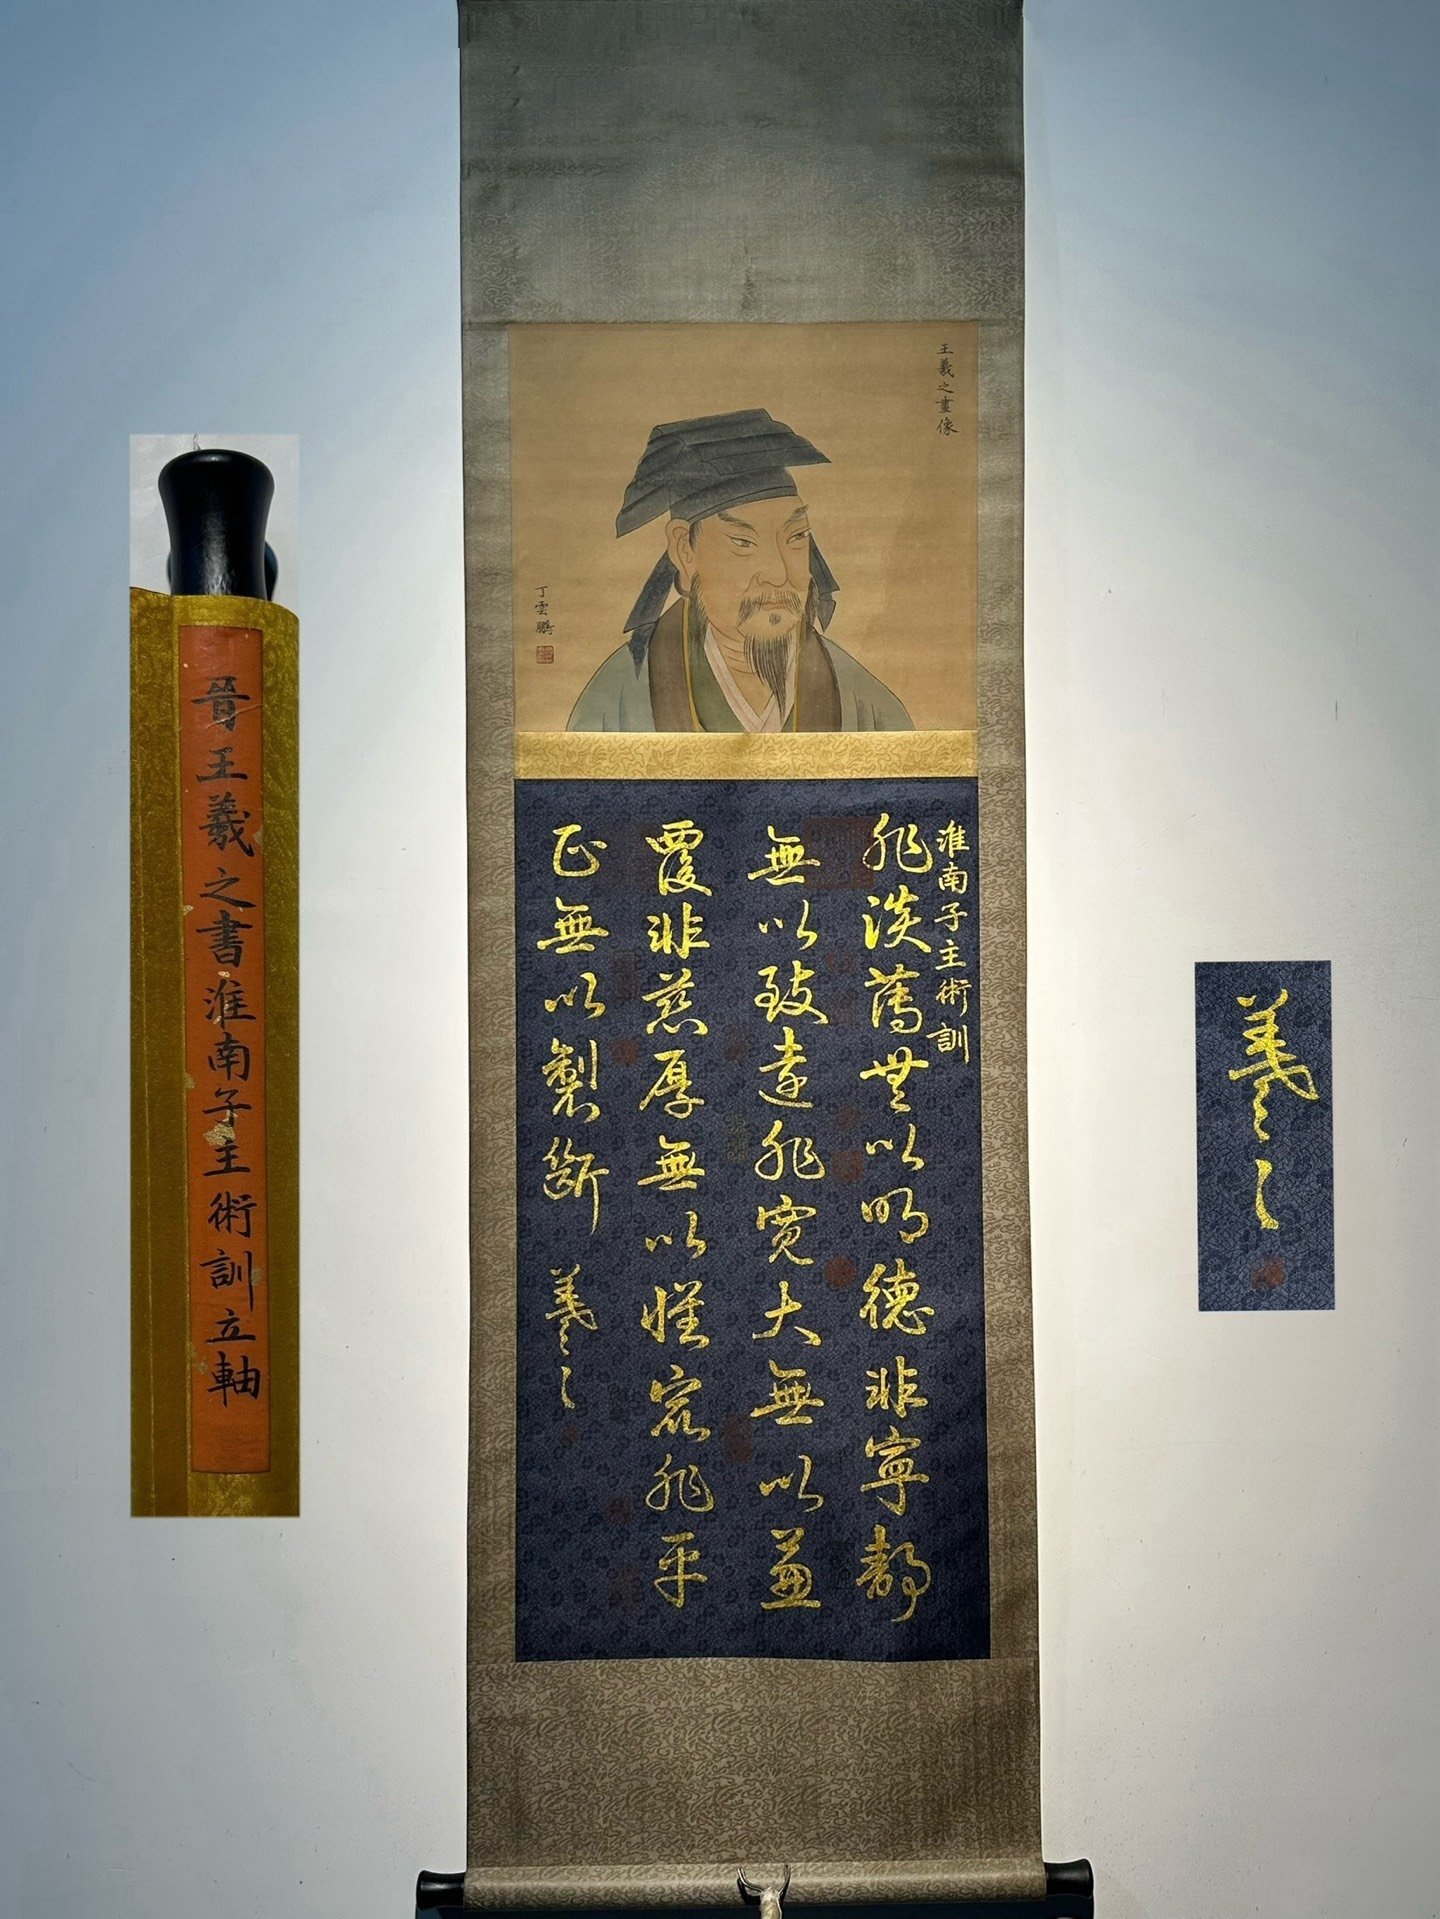 晉王羲之書淮南子主術訓立軸
王羲之畫像
丁雲鵬
淮南子主術訓
非淡薄無以明德非寧靜
無以致遠非寬大無以並
覆非慈厚無以懷眾非平
正無以製斷
羲之
羲之